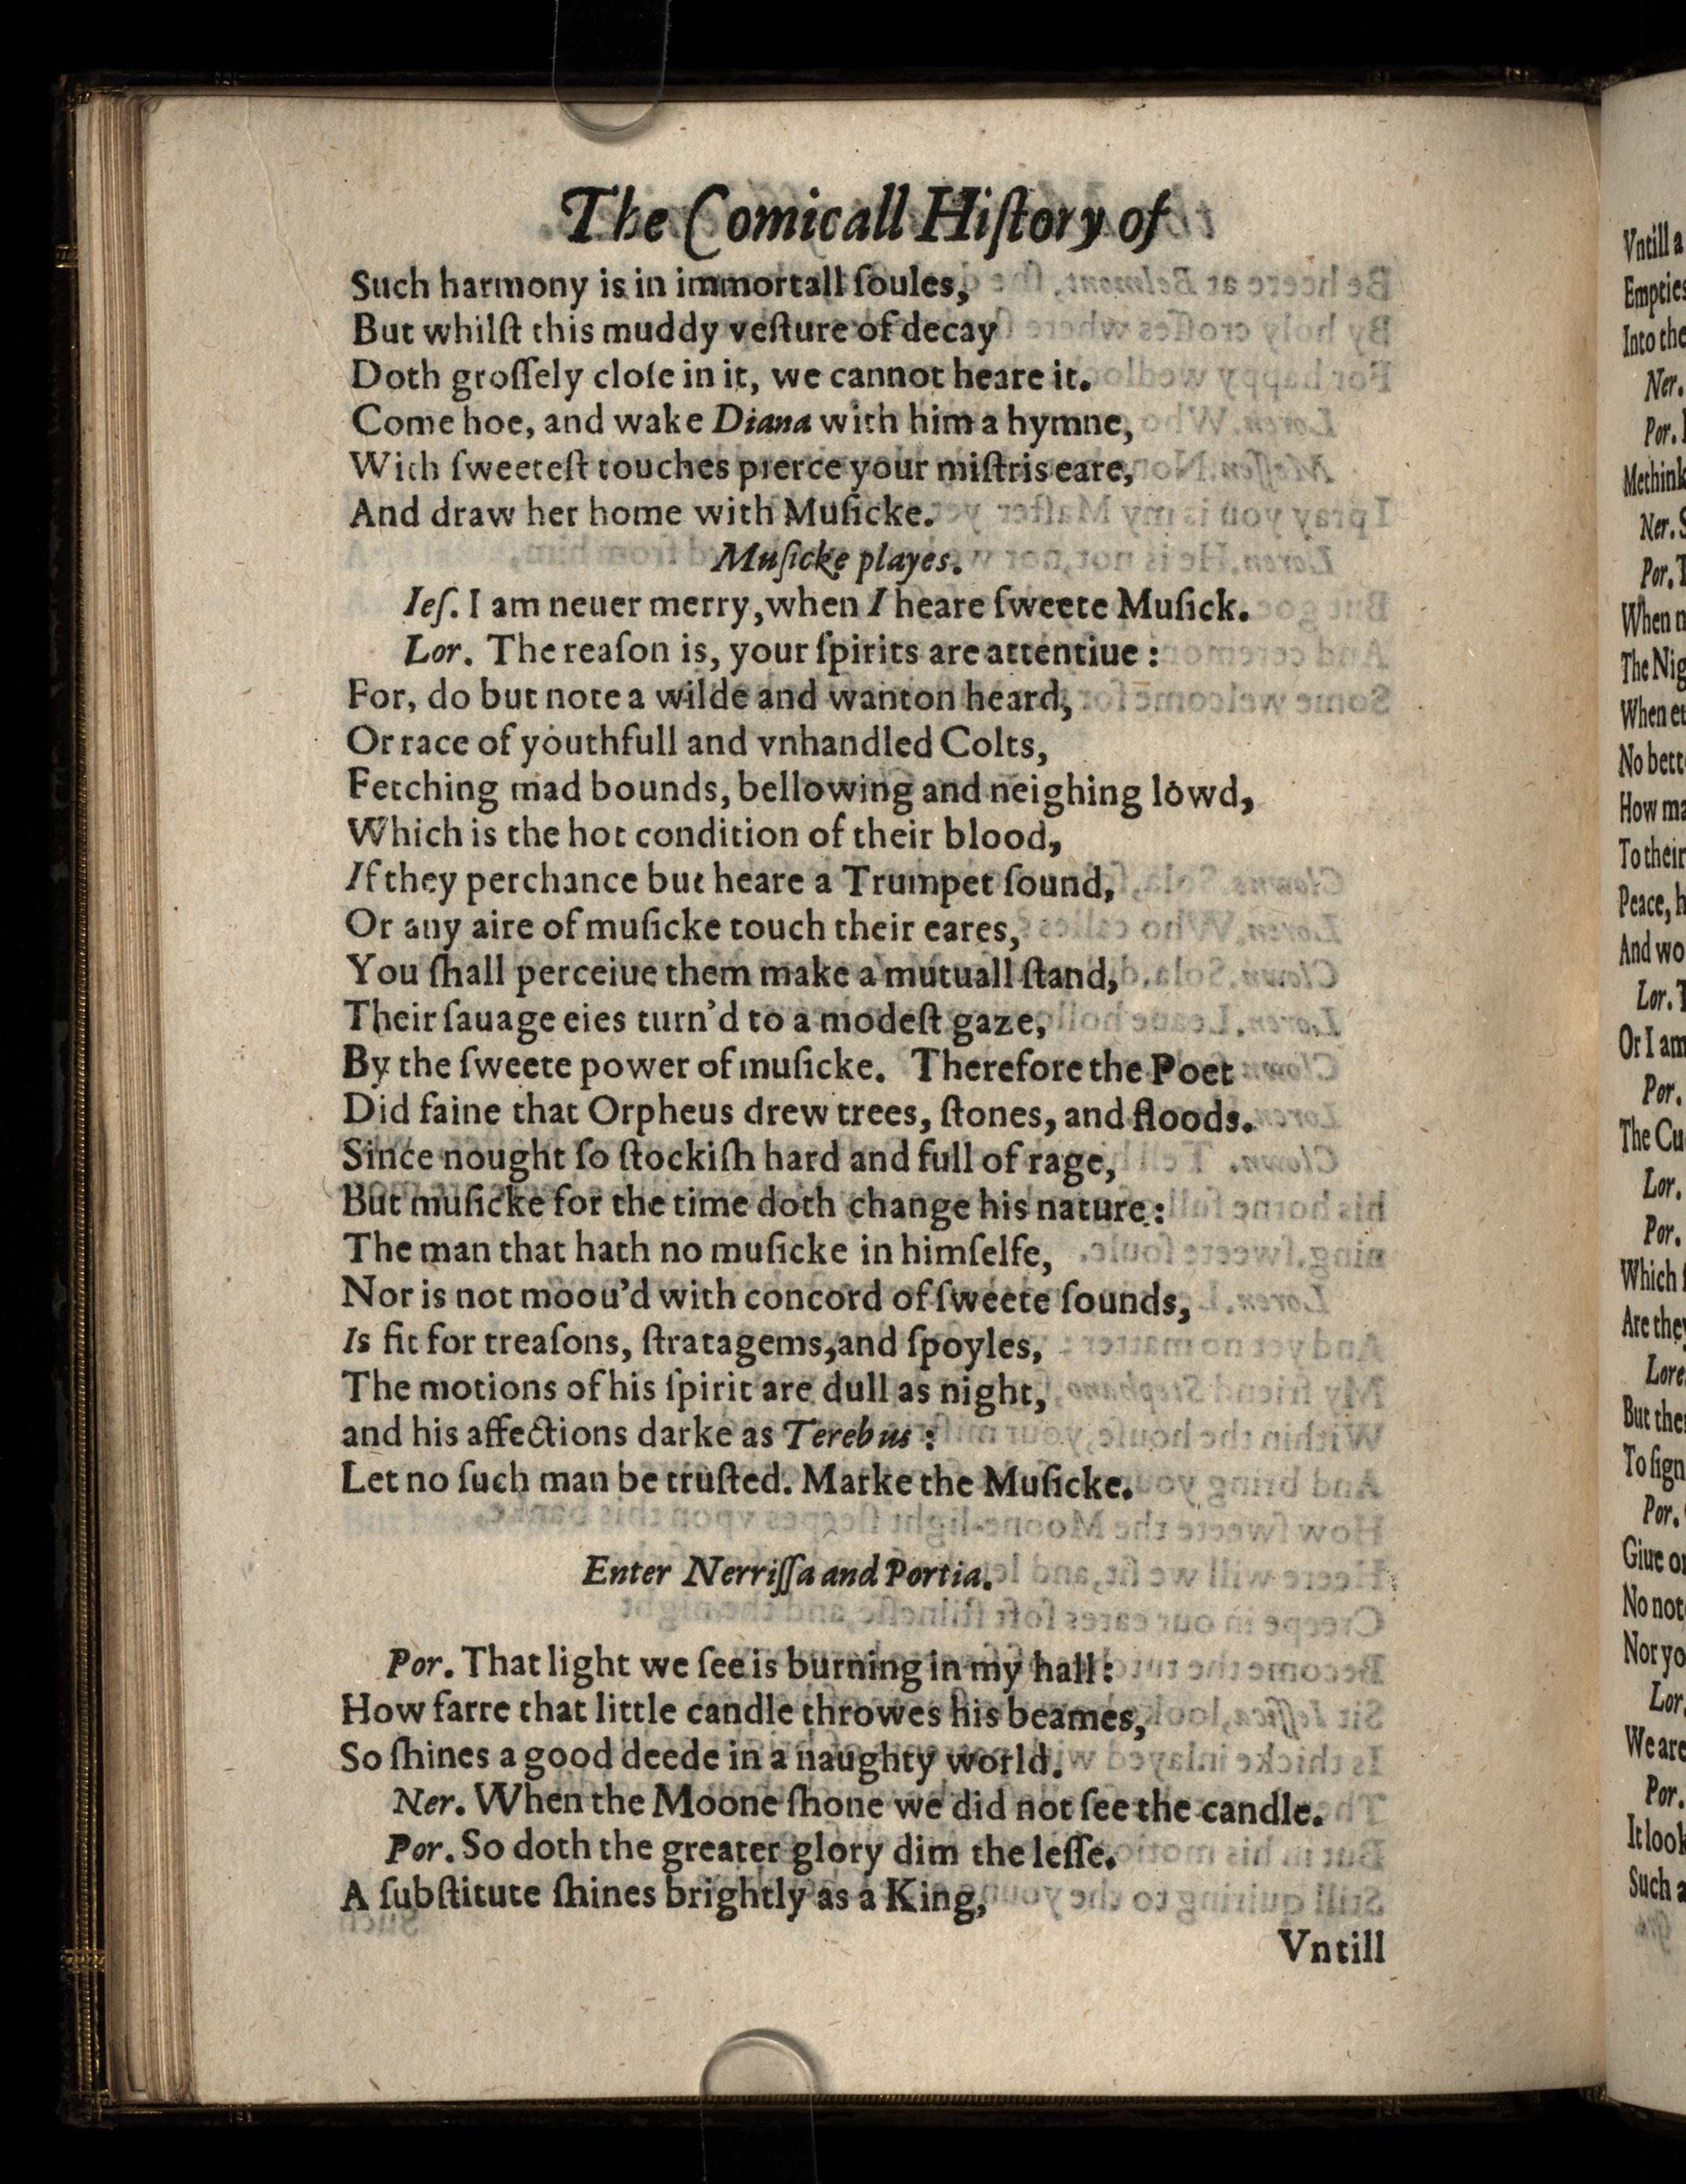 The Comicall Hiſtory of
Such harmony is in immortall ſoules,
But whilſt this muddy veſture of decay
Doth groſſely cloſe in it, we cannot heare it.
Come hoe, and wake Diana with him a hymne,
With ſweeteſt touches pierce your miſtris eare,
And draw her home with Muſicke.
Muſicke playes.
Ieſ. I am neuer merry,when I heare ſweete Muſick.
Lor. The reaſon is, your ſpirits are attentiue :
For, do but note a wilde and wanton heard,
Or race of youthfull and vnhandled Colts,
Fetching mad bounds, bellowing and neighing lowd,
Which is the hot condition of their blood,
If they perchance but heare a Trumpet ſound,
Or any aire of muſicke touch their eares,
You ſhall perceiue them make a mutuall ſtand,
Their ſauage eies turn'd to a modeſt gaze,
By the ſweete power of muſicke. Therefore the Poet
Did faine that Orpheus drew trees, ſtones, and floods.
Since nought ſo ſtockiſh hard and full of rage,
But muſicke for the time doth change his nature :
The man that hath no muſicke in himſelfe,
Nor is not moou'd with concord of ſweete ſounds,
Is fit for treaſons, ſtratagems,and ſpoyles,
The motions of his ſpirit are dull as night,
and his affections darke as Terebus :
Let no ſuch man be truſted. Marke the Muſicke.
Enter Nerriſſa and Portia.
Por. That light we ſee is burning in my hall :
How farre that little candle throwes his beames,
So ſhines a good deede in a naughty world.
Ner. When the Moone ſhone we did not ſee the candle.
Por. So doth the greater glory dim the leſſe.
A ſubſtitute ſhines brightly as a King,
Vntill
Vntill a
Empties
Into the
Ner.
Por.
Methink
Ner. S
Por. T
When n
The Nig
When eu
No bett
How ma
To their
Peace, h
And wo
Lor. T
Or I am
Por.
The Cu
Lor.
Por.
Which ſ
Are they
Lore
But the
To ſign
Por.
Giue or
No not
Nor yo
Lor.
We are
Por.
It look
Such a